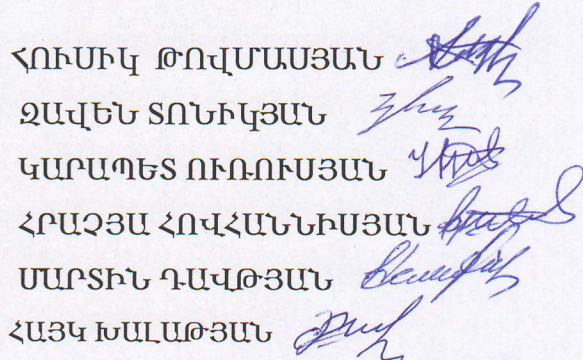 ՀՈՒՍԻԿ ԹՈՎՄԱՍՅԱՆ
ԶԱՎԵՆ ՏՈՆԻԿՅԱՆ
ԿԱՐԱՊԵՏ ՈՒՌՈՒՍՅԱՆ
ՀՐԱՉՅԱ ՀՈՎՀԱՆՆԻՍՅԱՆ
ՄԱՐՏԻՆ ԴԱՎԹՅԱՆ
ՀԱՅԿ ԽԱԼԱԹՅԱՆ